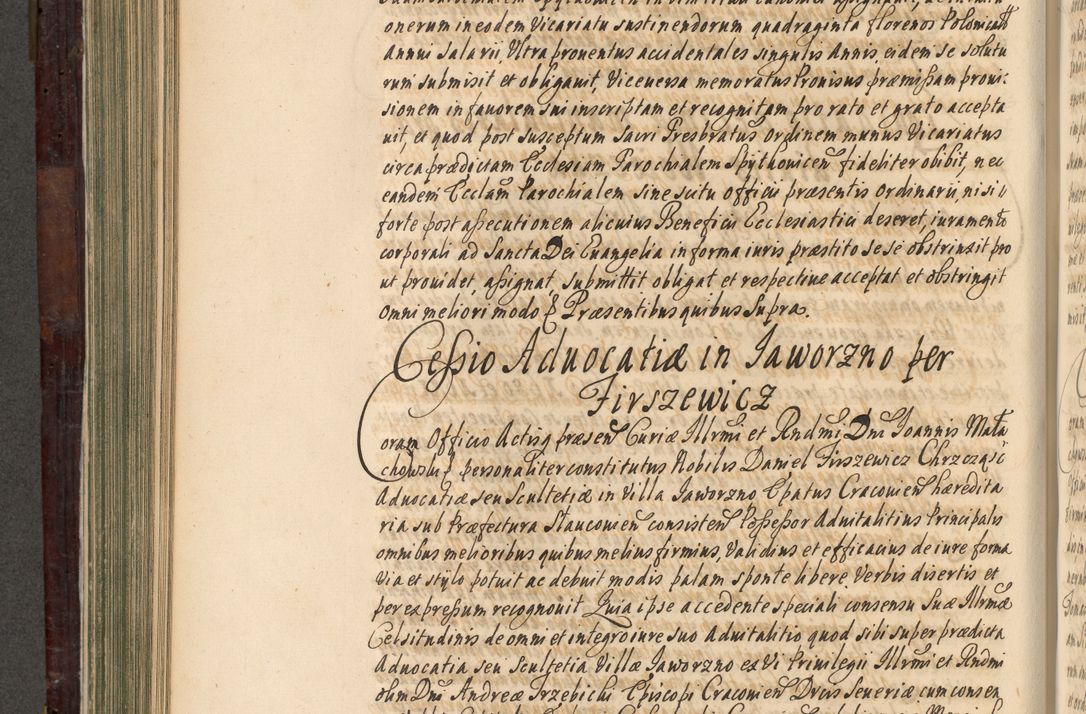 onerum in eodem Vicariatu sustinendorum quadraginta florenos Polonicales
annui salarii, Ultra proventus accidentales singulis Annis, eidem se solutu
rum submisit et obligavit, Vice versa memoratus Provisus præmissam provi:
sionem in favorem sui inscriptam et recognitam pro rato et grato accepta
vit, et quod post susceptum sacri Presbratus Ordinem munus Vicariatus
circa prædictam Ecclesiam Parochialem Spÿthovicen fideliter obibit, nec
eandem Ecclam Parochialem sine scitu officii præsentis Ordinarii, nisi
forte post assecutionem alicuius Beneficii Ecclesiastici deseret, iuramento
corporali ad Sancta Dei Evangelia in forma iuris præstito sese obstrinxit pro
ut providet, assignat, submittit obligat et respective acceptat et obstringit
omni meliori modo Præsentibus quibus Supra.
Cessio Advocatiæ in Jaworzno per
Firszewicz
Coram Officio Actisq præsen Curiæ Illrmi et Rndmi Dni Joannis Mala
chowski personaliter constitutus Nobilis Daniel Firszewicz Chrzcząsc
Advocatiæ seu Scultetiæ in Villa Jaworzno Epatus Cracovien hæredita
ria sub Præfectura Slaucovien consisten Possessor Advitalitius Principalis
omnibus melioribus quibus melius firmius, Validius et efficacius de iure forma
Via et stylo potuit ac debuit modis palam sponte libere Verbis disertis et
per expressum recognovit Quia ipse accedente speciali consensu Suæ Illrmæ
Celsitudinis de omni et integro iure suo Advitalitio quod sibi super prædicta
Advocatia seu Scultetia Villæ Jaworzno ex Vi Privilegii Illrmi et Rndmi
olim Dni Andreæ Trzebicki Episcopi Cracovien Ducis Severiæ cum consen